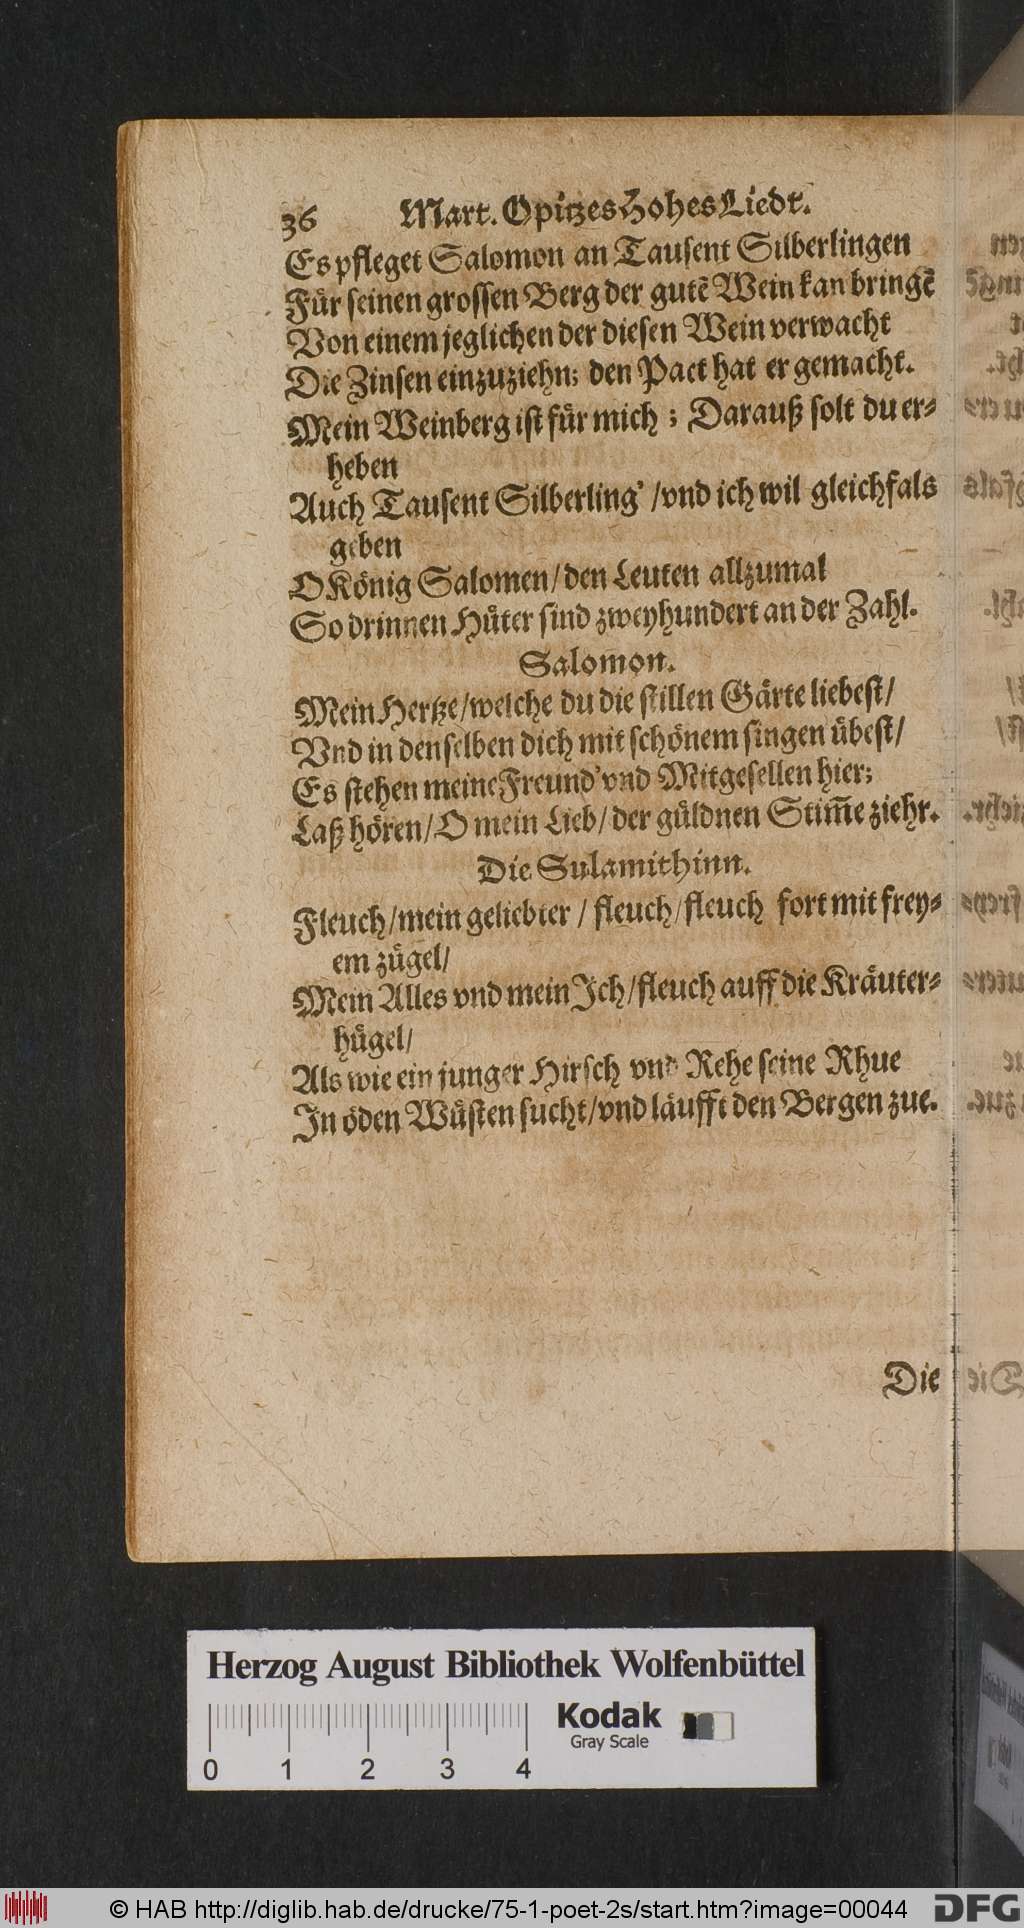 36 Mart. Opitzes Hohes Liedt.
Es pfleget Salomon an Tausent Silberlingen
Für seinen grossen Berg der gutē Wein kan bringē
Von einem jeglichen der diesen Wein verwacht
Die Zinsen einzuziehn; den Pact hat er gemacht.
Mein Weinberg ist für mich; Darauß solt du er⸗
heben
Auch Tausent Silberling' /vnd ich wil gleichfals
geben
O König Salomen/ den Leuten allzumal
So drinnen Hüter sind zweyhundert an der Zahl.
Salomon.
Mein Hertze/welche du die stillen Gärte liebest/
Vnd in denselben dich mit schönem singen übest/
Es stehen meine Freund' vnd Mitgesellen hier;
Laß hören/ O mein Lieb/ der güldnen Stim̄e ziehr.
Die Sulamithinn.
Fleuch/mein geliebter / fleuch/fleuch fort mit frey⸗
em zügel/
Mein Alles vnd mein Ich/fleuch auff die Kräuter⸗
hügel/
Als wie ein junger Hirsch vnd Rehe seine Rhue
In öden Wüsten sucht/vnd läufft den Bergen zue.
Die
Herzog August Bibliothek Wolfenbüttel
Kodak
Gray Scale
0 1 2 3 4
© HAB http://diglib.hab.de/drucke/75-1-poet-2s/start.htm?image=00044 DFG